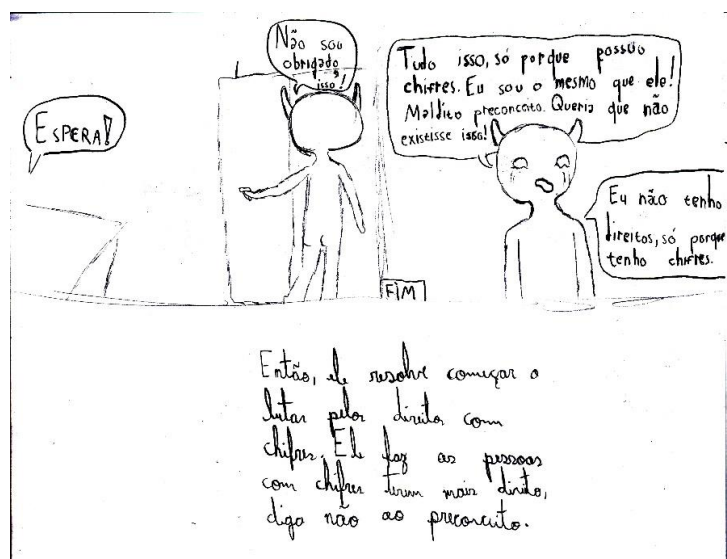 ESPERA!
Não sou
obrigado
isso!
Tudo isso, só porque possuo
chifres. Eu sou o mesmo que ele!
Maldito preconceito. Queria que não
existisse isso!
Eu não tenho
direitos, só porque
tenho chifres.
FIM
Então, ele resolve começar a
lutar pelos direitos com
chifres. Ele faz as pessoas
com chifres terem mais direito,
diga não ao preconceito.